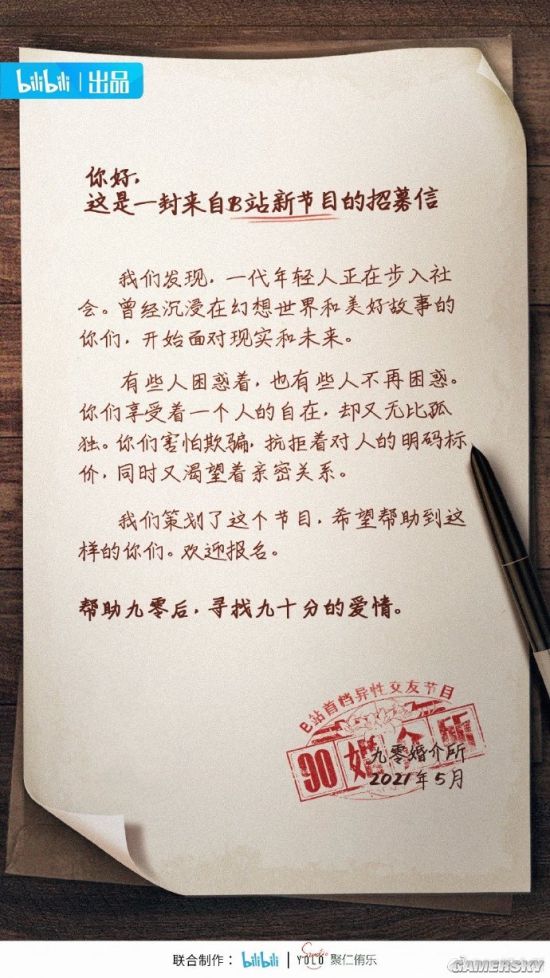 bilibili | 出品
你好，
这是一封来自B站新节目的招募信
我们发现，一代年轻人正在步入社
会。曾经沉浸在幻想世界和美好故事的
你们，开始面对现实和未来。
有些人困惑着，也有些人不再困惑。
你们享受着一个人的自在，却又无比孤
独。你们害怕欺骗，抗拒着对人的明码标
价，同时又渴望着亲密关系。
我们策划了这个节目，希望帮助到这
样的你们。欢迎报名。
帮助九零后，寻找九十分的爱情。
B站首档异性交友节目
90婚介所
九零婚介所
2021年5月
联合制作：bilibili | YOLO Studio 聚仁侑乐
GAMERSKY